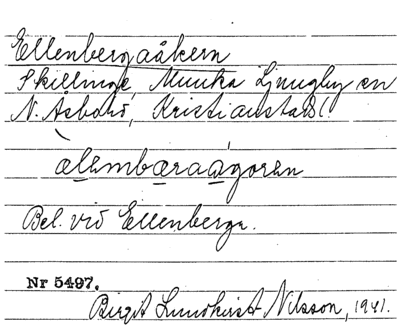 Ellenbergaåkern
Skillinge, Munka Ljungby sn
N. Åsbo hd, Kristianstads l.
Bel. vid Ellenberga.
Nr 5497.
Birgit Lundkvist Nilsson, 1941.